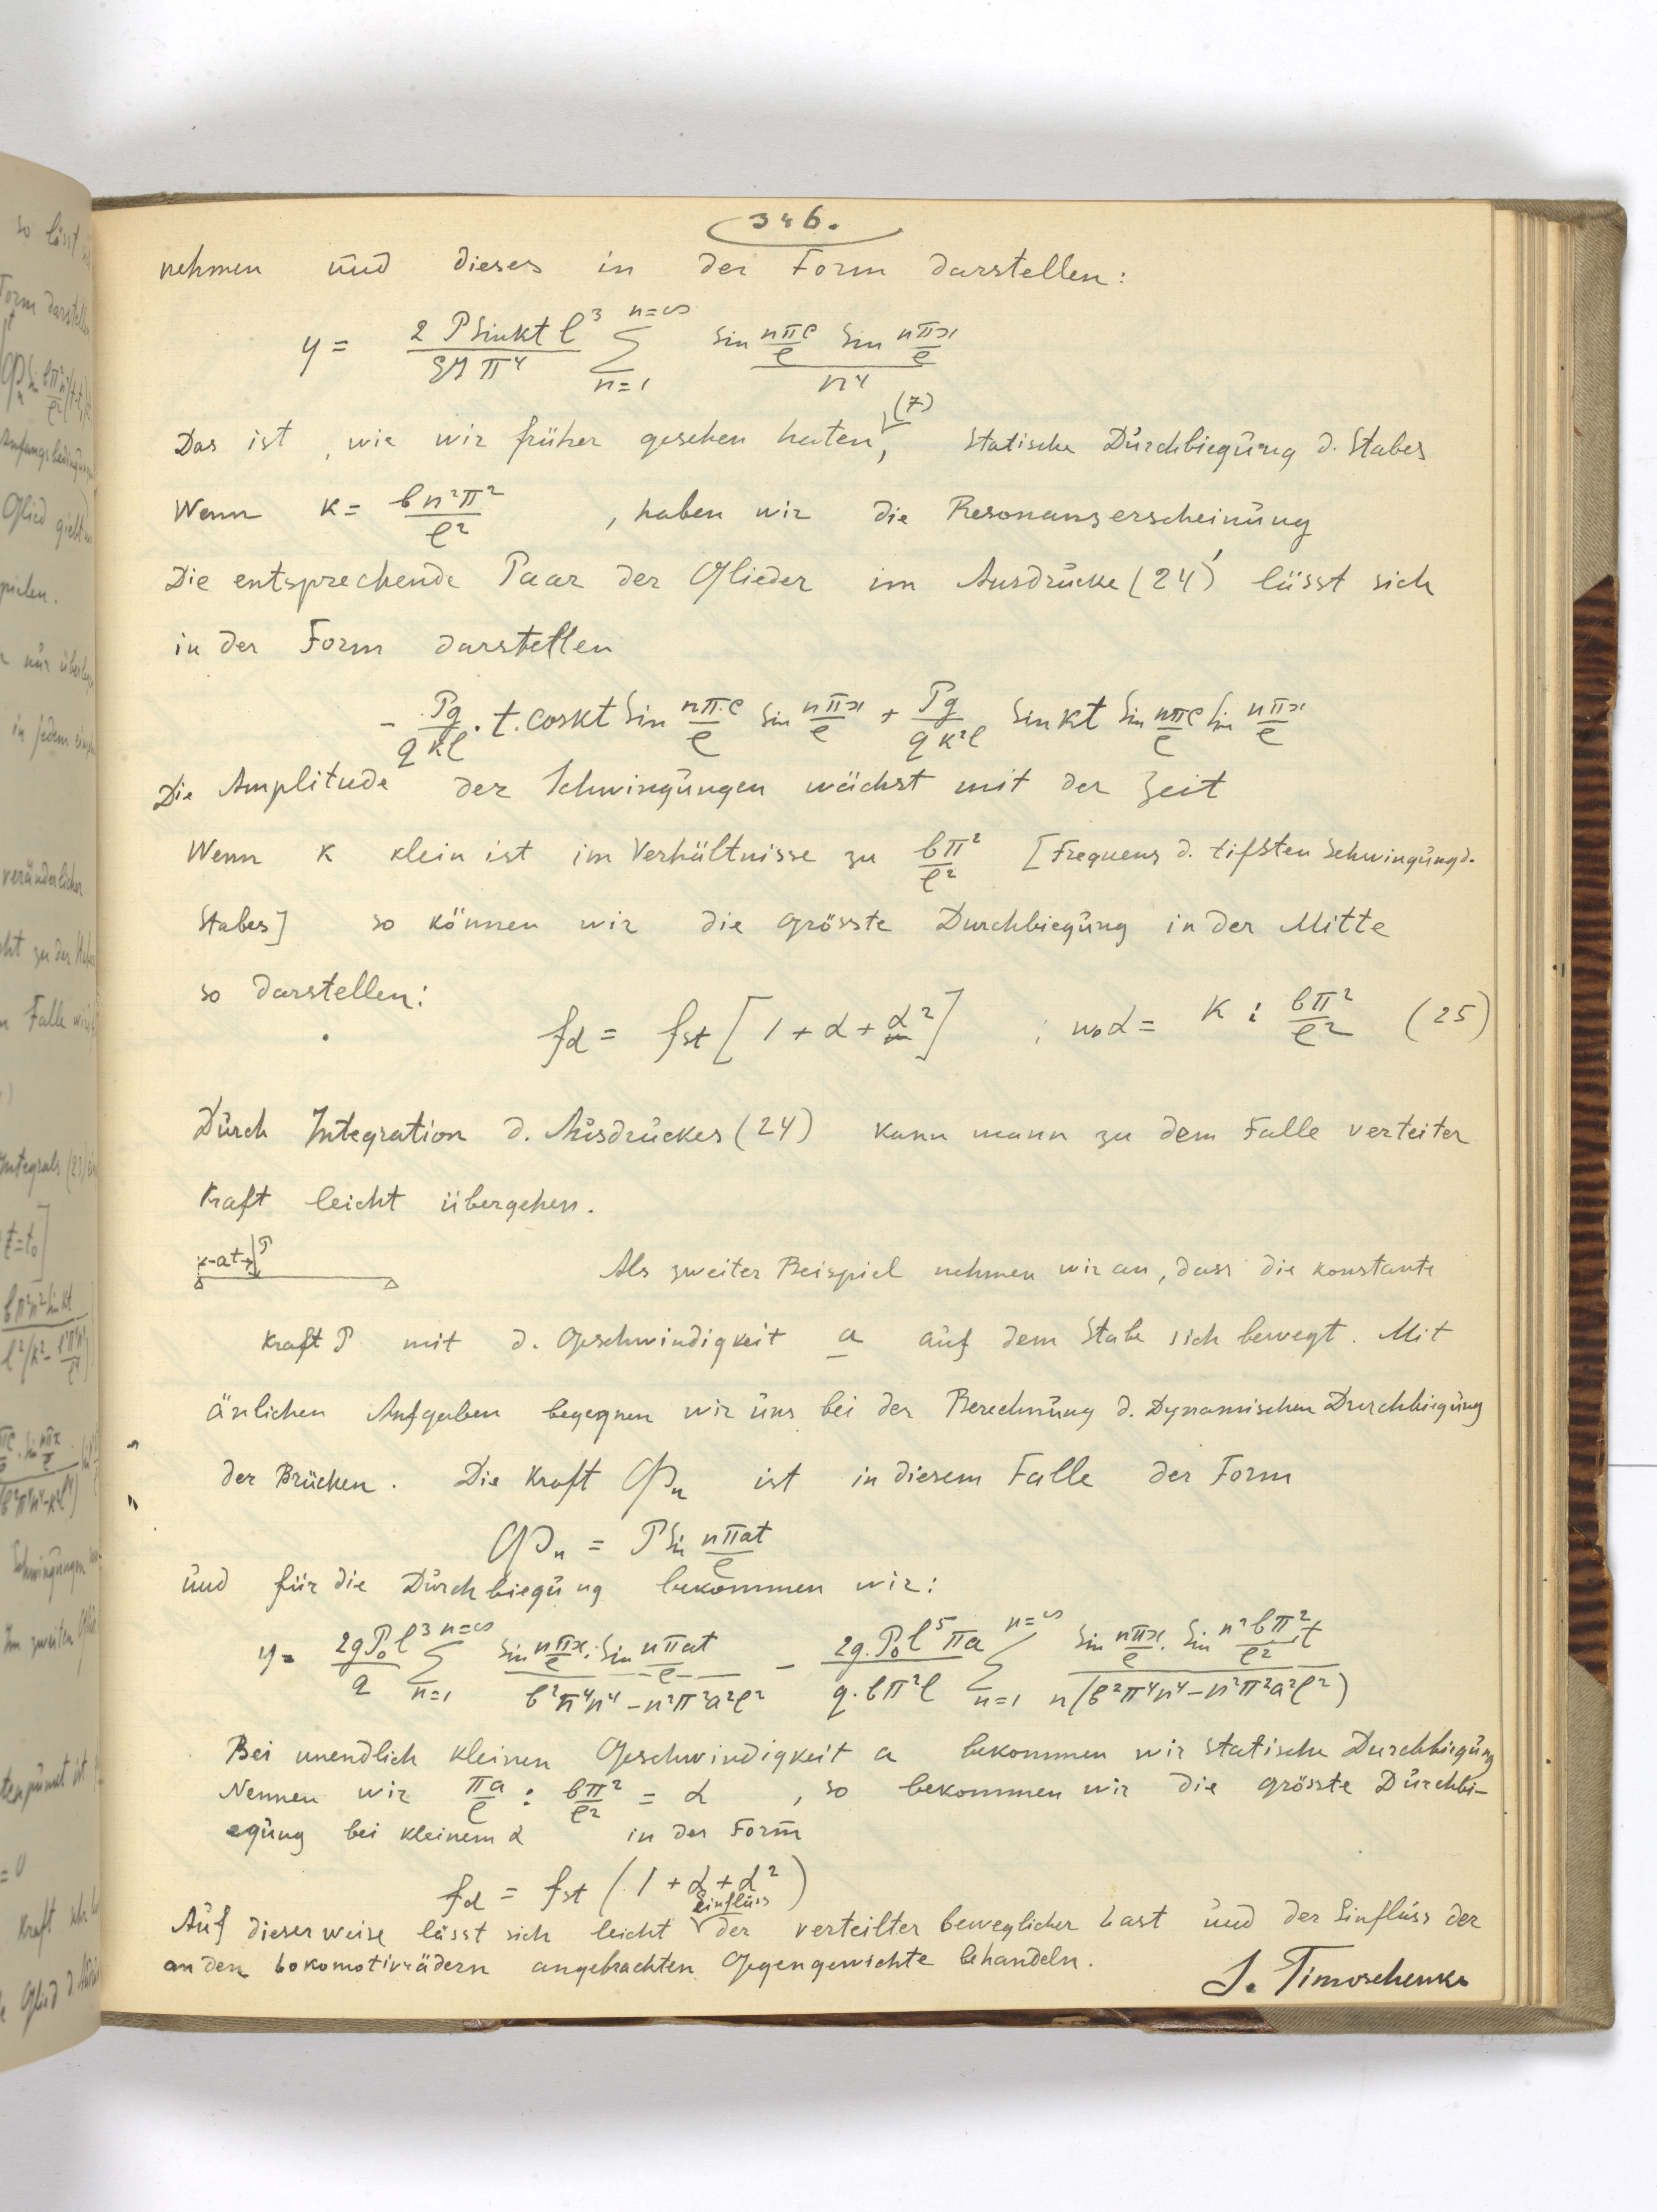 346.
nehmen und dieses in der Form darstellen:
y = 2 P Sin kt l³ / EJ π⁴ Σ n=1 n=∞ Sin nπc/l Sin nπx/l / n⁴
Das ist, wie wir früher gesehen haten, (7) statische Durchbiegung d. Stabes
Wenn K = b n²π² / l² , haben wir die Resonanzerscheinung
Die entsprechende Paar der Glieder im Ausdrucke (24)' lässt sich
in der Form darstellen
- Pg / q k l . t . cos kt Sin nπc/l Sin nπx/l + Pg / q k² l Sin kt Sin nπc/l Sin nπx/l
Die Amplitude der Schwingungen wächst mit der Zeit
Wenn K klein ist im Verhältnisse zu bπ²/l² [Frequenz d. tifsten Schwingung d.
Stabes] so können wir die grösste Durchbiegung in der Mitte
so darstellen:
f_d = f_st [1 + α + α²] ; wo α = K : bπ²/l² (25)
Durch Integration d. Ausdruckes (24) kann mann zu dem Falle verteiter
Kraft leicht übergehen.
x-at→ P
Als zweiter Beispiel nehmen wir an, dass die konstante
Kraft P mit d. Geschwindigkeit a auf dem Stabe sich bewegt. Mit
änlichen Aufgaben begegnen wir uns bei der Berechnung d. Dynamischen Durchbiegung
der Brücken. Die Kraft Φ_n ist in diesem Falle der Form
Φ_n = P Sin nπat/l
und für die Durchbiegung bekommen wir:
y = 2gP₀l³/q Σ n=1 n=∞ Sin nπx/l . Sin nπat/l / b²π⁴n⁴ - n²π²a²l² - 2g.P₀l⁵πa / q.bπ²l Σ n=1 n=∞ Sin nπx/l . Sin n²bπ²t/l² / n(b²π⁴n⁴ - n²π²a²l²)
Bei unendlich kleinen Geschwindigkeit a bekommen wir statische Durchbiegung
Nennen wir πa/l : bπ²/l² = α , so bekommen wir die grösste Durchbi-
egung bei kleinem α in der Form
f_d = f_st (1 + α + α²)
Auf dieser weise lässt sich leicht Einfluss der verteilter beweglicher Last und der Einfluss der
an den Lokomotivrädern angebrachten Gegengewichte behandeln.
S. Timoschenko